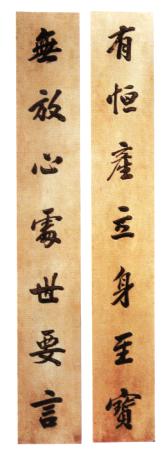 有恒産立身至寶
無放心處世要言